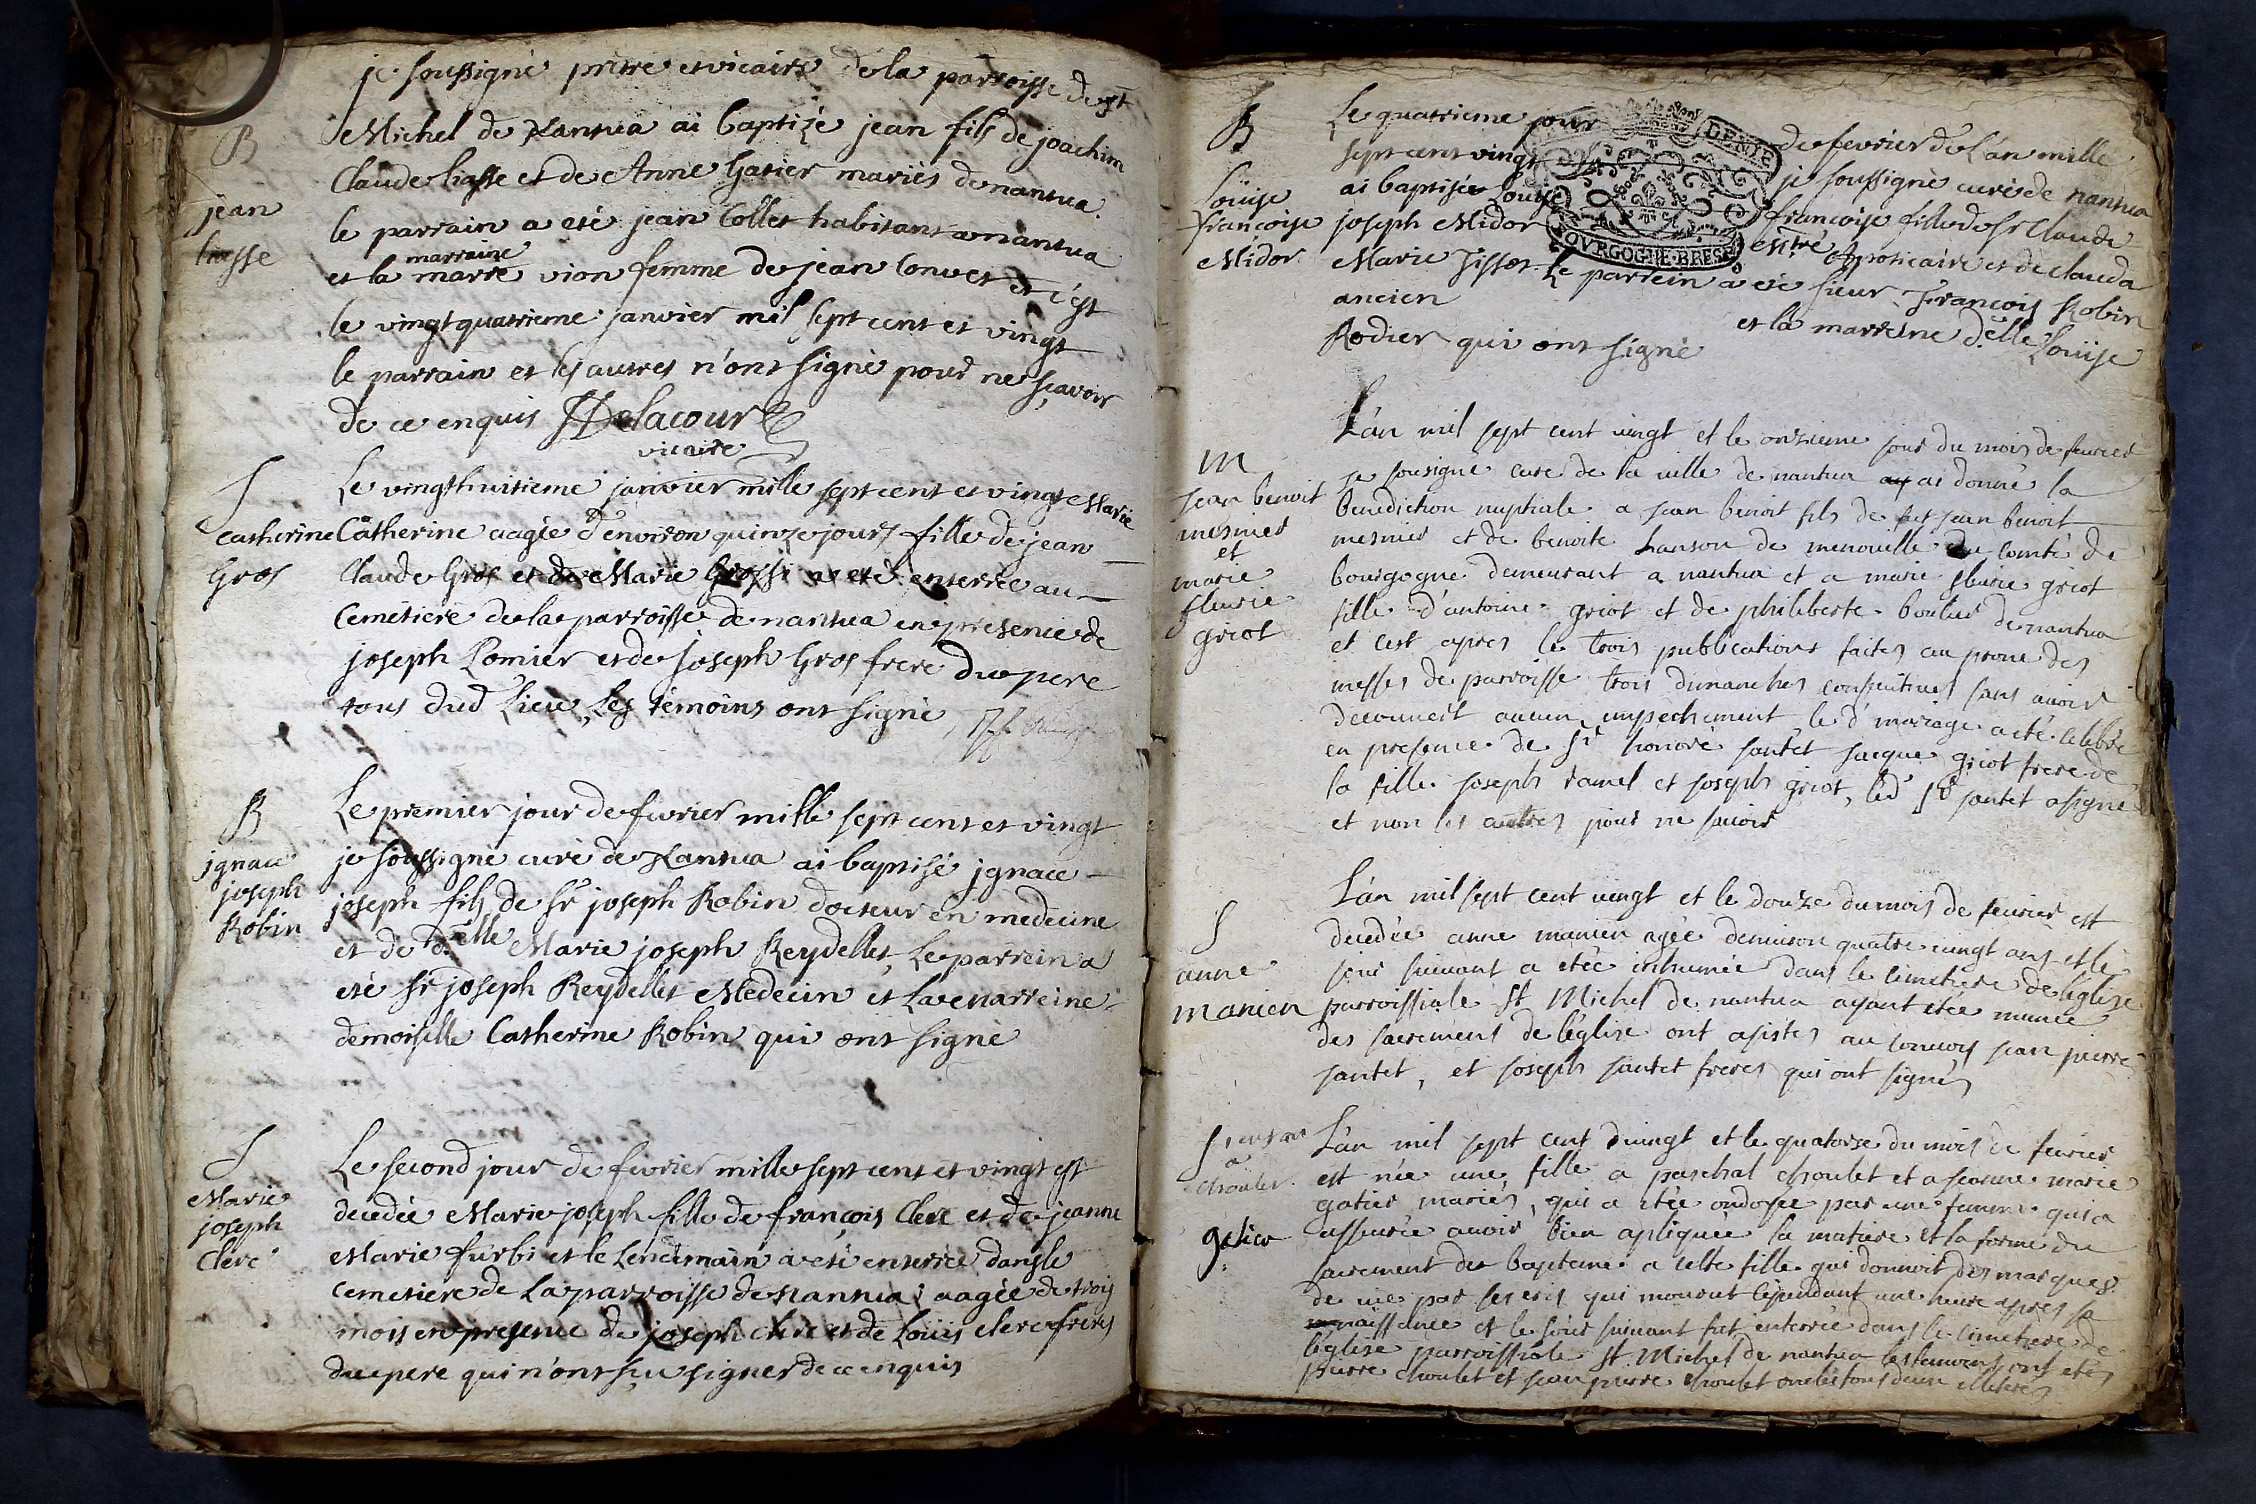 je soussigné prêtre et vicaire de la parroisse de st
B
Michel de Nantua ai baptizé jean fils de joachim
Claude liasse et de Anne Gatier mariés de nantua.
jean
liasse
le parrain a eté jean Collet habitant a nantua
marraine
et la marre vion femme de jean Convert et c'est
le vingt quatrieme janvier mil sept cent et vingt
le parrain et les autres n'ont signé pour ne sçavoir
de ce enquis Delacour
vicaire
S
Le vingthuitieme janvier mille sept cent et vingt Marie
catherine
Gros
Catherine aagée d'environ quinze jours fille de jean
Claude Gros et de Marie Grossi a eté enterrée au
Cemetiere de la parroisse de nantua en presence de
joseph Pomier et de joseph Gros frere du pere
tous dud lieu, Les témoins ont signé
B
Le premier jour de fevrier mille sept cent et vingt
ignace
joseph
Robin
je soussigné curé de Nantua ai baptisé jgnace
joseph fils de Sr joseph Robin docteur en medecine
et de delle Marie joseph Reydellet, Le parrein a
eté Sr joseph Reydellet Medecin et La marreine
demoiselle Catherine Robin qui ont signé
S
Le second jour de fevrier mille sept cent et vingt est
Marie
joseph
Clerc
decedée Marie joseph fille de françois Clerc et de jeanne
Marie furbi et le Lendemain a eté enterrée dans le
cemetiere de La parroisse de nantua aagée de trois
mois en presence de joseph clerc et de Loüis clerc freres
du pere qui n'ont sçu signer de ce enquis
B
Le quatrieme jour de fevrier de L'an mille
sept cent vingt je soussigné curé de nantua
Loüise
françoise
Midor
ai baptisée Louise françoise fille de Sr Claude
joseph Midor Mtre Apoticaire et de Clauda
Marie Tissot. Le parrein a eté sieur François Robin
ancien et la marreine delle Loüise
Rodier qui ont signé
DENIE
BOVRGOGNE BRESSE
L'an mil sept cent vingt et le onzieme jour du mois de feurier
M
jean benoit
mesmier
et
marie
fleurie
griot
je sousigné curé de la uille de nantua ay ai donné la
benediction nuptiale a jean benoit fils de feu jean benoit
mesmier et de benoite hanson de menouille du comté de
bourgogne demeurant a nantua et a marie fleurie griot
fille d'antoine griot et de philiberte boulier de nantua
et c'est apres les trois publications faites au prone des
messes de parroisse trois dimanches consecutiues sans auoir
decouuert aucun empechement, le d mariage a eté celebré
en presence de Sr honoré jantet jacque griot frere de
la fille joseph ramel et joseph griot, led Sr jantet a signé
et non les autres pour ne sauoir
L'an mil sept cent uingt et le douze du mois de feurier est
S
anne
manien
decedée anne manien agée denuiron quatre uingt ans et le
jour suiuant a etée inhumée dans le cimetiere de leglise
parroissiale st Michel de nantua ayant etée munie
des sacrements de leglise ont asistes au conuoy jean pierre
jantet, et joseph jantet freres qui ont signés
S
choulet
L'an mil sept cent uingt et le quatorze du mois de feurier
est née une fille a paschal choulet et a jeanne marie
gatier mariés, qui a etée ondoyée par une femme qui a
gatier
assurée auoir bien apliquée la matiere et la forme du
sacrement de bapteme a cette fille qui donnoit des marques
de uie par ses cris qui mourut cependant une heure apres sa
naissance et le jour suiuant fut enterrée dans le cimetiere de
leglise parroissiale st Michel de nantua les temoins ont etés
pierre choulet et jean pierre choulet